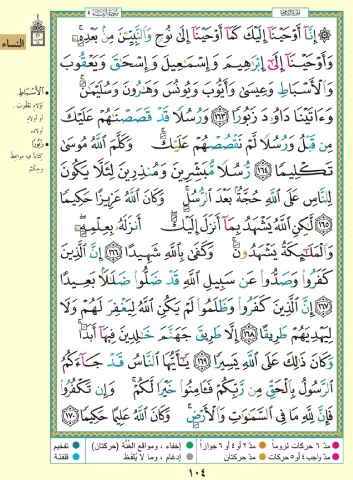 سورة النساء ٤
النساء
۞ إِنَّآ أَوْحَيْنَآ إِلَيْكَ كَمَآ أَوْحَيْنَآ إِلَىٰ نُوحٍ وَٱلنَّبِيِّـۧنَ مِنۢ بَعْدِهِۦۚ
وَأَوْحَيْنَآ إِلَىٰٓ إِبْرَٰهِيمَ وَإِسْمَٰعِيلَ وَإِسْحَٰقَ وَيَعْقُوبَ
وَٱلْأَسْبَاطِ وَعِيسَىٰ وَأَيُّوبَ وَيُونُسَ وَهَٰرُونَ وَسُلَيْمَٰنَۚ
وَءَاتَيْنَا دَاوُۥدَ زَبُورًا ١٦٣ وَرُسُلًا قَدْ قَصَصْنَٰهُمْ عَلَيْكَ
مِن قَبْلُ وَرُسُلًا لَّمْ نَقْصُصْهُمْ عَلَيْكَۚ وَكَلَّمَ ٱللَّهُ مُوسَىٰ
تَكْلِيمًا ١٦٤ رُّسُلًا مُّبَشِّرِينَ وَمُنذِرِينَ لِئَلَّا يَكُونَ
لِلنَّاسِ عَلَى ٱللَّهِ حُجَّةٌۢ بَعْدَ ٱلرُّسُلِۚ وَكَانَ ٱللَّهُ عَزِيزًا حَكِيمًا
١٦٥ لَّٰكِنِ ٱللَّهُ يَشْهَدُ بِمَآ أَنزَلَ إِلَيْكَۖ أَنزَلَهُۥ بِعِلْمِهِۦۖ
وَٱلْمَلَٰٓئِكَةُ يَشْهَدُونَۚ وَكَفَىٰ بِٱللَّهِ شَهِيدًا ١٦٦ إِنَّ ٱلَّذِينَ
كَفَرُوا۟ وَصَدُّوا۟ عَن سَبِيلِ ٱللَّهِ قَدْ ضَلُّوا۟ ضَلَٰلًۢا بَعِيدًا
١٦٧ إِنَّ ٱلَّذِينَ كَفَرُوا۟ وَظَلَمُوا۟ لَمْ يَكُنِ ٱللَّهُ لِيَغْفِرَ لَهُمْ وَلَا
لِيَهْدِيَهُمْ طَرِيقًا ١٦٨ إِلَّا طَرِيقَ جَهَنَّمَ خَٰلِدِينَ فِيهَآ أَبَدًاۚ
وَكَانَ ذَٰلِكَ عَلَى ٱللَّهِ يَسِيرًا ١٦٩ يَٰٓأَيُّهَا ٱلنَّاسُ قَدْ جَآءَكُمُ
ٱلرَّسُولُ بِٱلْحَقِّ مِن رَّبِّكُمْ فَـَٔامِنُوا۟ خَيْرًا لَّكُمْۚ وَإِن تَكْفُرُوا۟
فَإِنَّ لِلَّهِ مَا فِى ٱلسَّمَٰوَٰتِ وَٱلْأَرْضِۚ وَكَانَ ٱللَّهُ عَلِيمًا حَكِيمًا ١٧٠
الأسباط
أولاد يعقوب،
أو أولادِ
أولاده
زبوراً
كتاباً فيه مواعظ
وحِكَمٌ
مدّ ٦ حركات لزوماً
مدّ ٢ أو ٤ أو ٦ جوازاً
إخفاء، ومواقع الغُنَّة (حركتان)
تفخيم
مدّ واجب ٤ أو ٥ حركات
مدّ حركتان
إدغام، وما لا يُلفظ
قلقلة
١٠٤